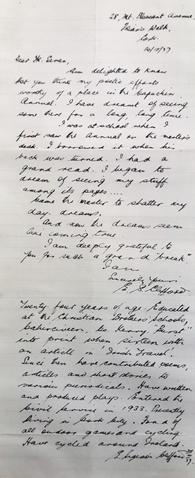 28, Mt. Pleasant Avenue,
Cork.
Dear Fr. Senan,
Am delighted to know
that you think my poetic efforts
worthy of a place in the Capuchin
Annual. I have dreamt of seeing
some there for a long, long time.
I was at school when I
first saw the Annual on the master's
desk. I borrowed it when his
back was turned. I had a
grand read. I began to
dream of seeing my stuff
among its pages....
Came the master to shatter my
day-dreams.
And now the dreams seem
are coming true.
I am deeply grateful to
you for such a grand "break"
I am
Sincerely yours,
Twenty four years of age. Educated
at the Christian Brothers Schools,
into print when sixteen with
an article in Irish Travel.
Since then have contributed poems,
articles and short stories to
various periodicals. Have written
and produced plays. Entered the
Civil Service in 1933. Recently
living in Cork City. Fond of
all outdoor games and cycling.
Have cycled around Ireland.